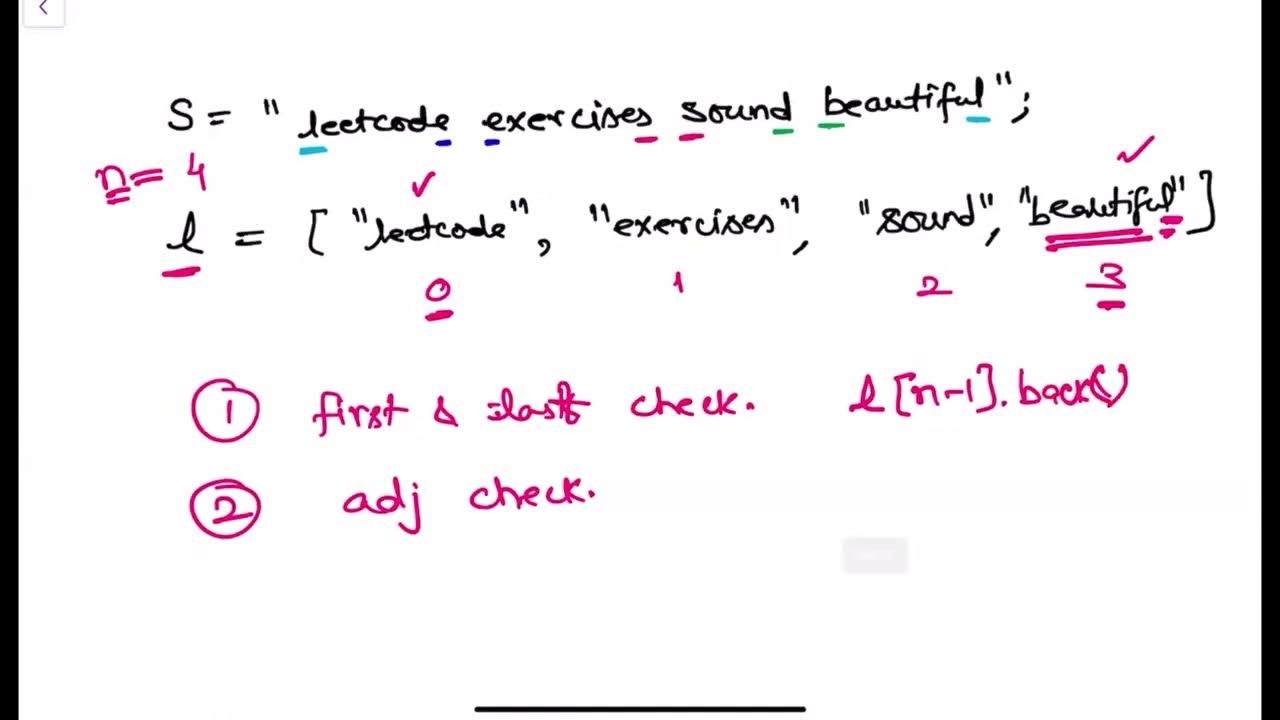 S = "leetcode exercises sound beautiful";
n = 4
l = ["leetcode", "exercises", "sound", "beautiful"]
0 1 2 3
1 first & last check. l[n-1].back()
2 adj check.